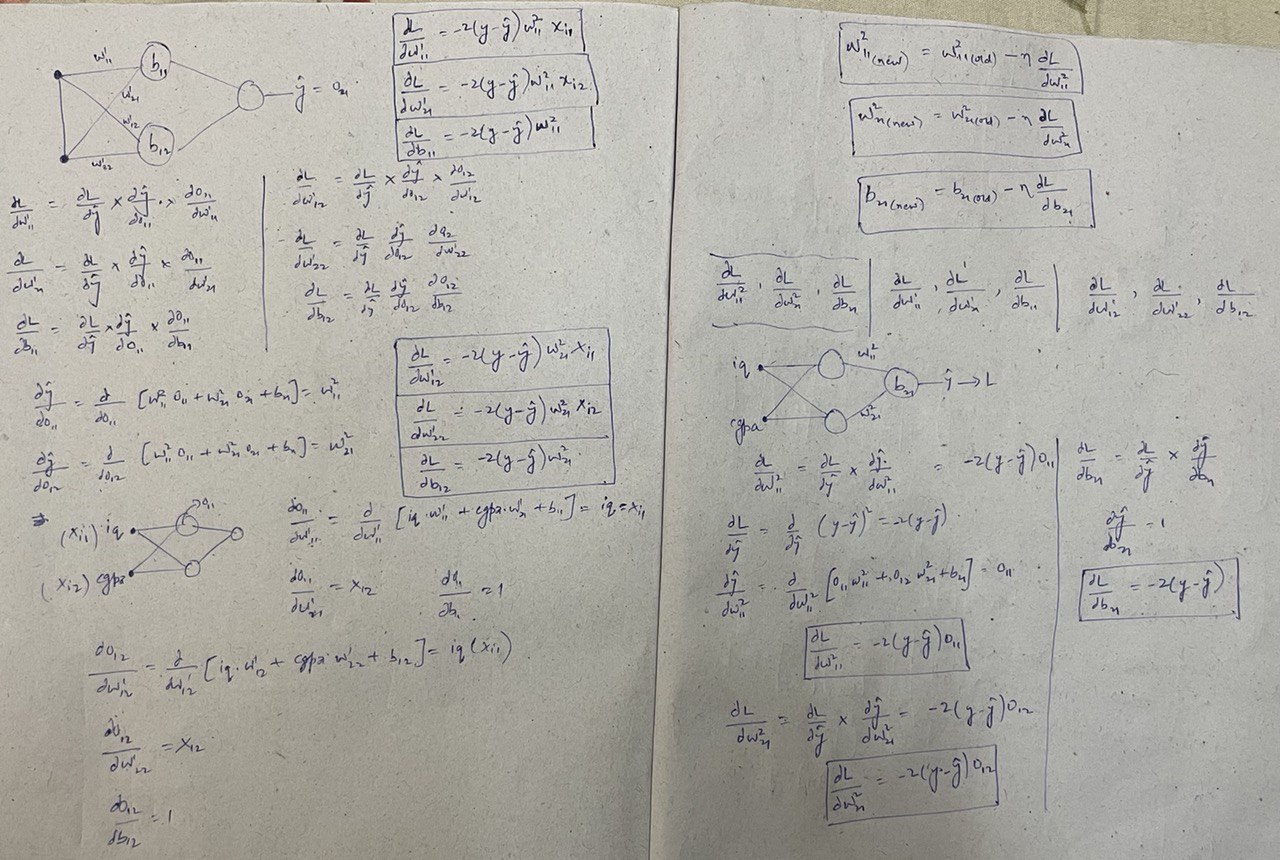 w¹₁₁
b₁₁
w¹₂₁
w¹₁₂
w¹₂₂
b₁₂
ŷ = O₂₁
∂L/∂w¹₁₁ = -2(y-ŷ) w²₁₁ xᵢ₁
∂L/∂w¹₂₁ = -2(y-ŷ) w²₁₁ xᵢ₂
∂L/∂b₁₁ = -2(y-ŷ) w²₁₁
∂L/∂w¹₁₁ = ∂L/∂ŷ × ∂ŷ/∂O₁₁ × ∂O₁₁/∂w¹₁₁
∂L/∂w¹₂₁ = ∂L/∂ŷ × ∂ŷ/∂O₁₁ × ∂O₁₁/∂w¹₂₁
∂L/∂b₁₁ = ∂L/∂ŷ × ∂ŷ/∂O₁₁ × ∂O₁₁/∂b₁₁
∂L/∂w¹₁₂ = ∂L/∂ŷ × ∂ŷ/∂O₁₂ × ∂O₁₂/∂w¹₁₂
∂L/∂w¹₂₂ = ∂L/∂ŷ ∂ŷ/∂O₁₂ ∂O₁₂/∂w¹₂₂
∂L/∂b₁₂ = ∂L/∂ŷ ∂ŷ/∂O₁₂ ∂O₁₂/∂b₁₂
∂L/∂w¹₁₂ = -2(y-ŷ) w²₂₁ xᵢ₁
∂L/∂w¹₂₂ = -2(y-ŷ) w²₂₁ xᵢ₂
∂L/∂b₁₂ = -2(y-ŷ) w²₂₁
∂ŷ/∂O₁₁ = ∂/∂O₁₁ [w²₁₁ O₁₁ + w²₂₁ O₂₁ + b₂₁] = w²₁₁
∂ŷ/∂O₁₂ = ∂/∂O₁₂ [w²₁₁ O₁₁ + w²₂₁ O₂₁ + b₂₁] = w²₂₁
O₁₁
(xᵢ₁) iq
(xᵢ₂) cgpa
∂O₁₁/∂w¹₁₁ = ∂/∂w¹₁₁ [iq·w¹₁₁ + cgpa·w¹₂₁ + b₁₁] = iq = xᵢ₁
∂O₁₁/∂w¹₂₁ = xᵢ₂
∂O₁/∂b₁ = 1
∂O₁₂/∂w¹₁₂ = ∂/∂w¹₁₂ [iq·w¹₁₂ + cgpa·w¹₂₂ + b₁₂] = iq (xᵢ₁)
∂O₁₂/∂w¹₂₂ = xᵢ₂
∂O₁₂/∂b₁₂ = 1
w²₁₁(new) = w²₁₁(old) - η ∂L/∂w²₁₁
w²₂₁(new) = w²₂₁(old) - η ∂L/∂w²₂₁
b₂₁(new) = b₂₁(old) - η ∂L/∂b₂₁
∂L/∂w²₁₁, ∂L/∂w²₂₁, ∂L/∂b₂₁ | ∂L/∂w¹₁₁, ∂L/∂w¹₂₁, ∂L/∂b₁₁ | ∂L/∂w¹₁₂, ∂L/∂w¹₂₂, ∂L/∂b₁₂
iq
cgpa
w²₁₁
w²₂₁
b₂₁
ŷ → L
∂L/∂w²₁₁ = ∂L/∂ŷ × ∂ŷ/∂w²₁₁ = -2(y-ŷ) O₁₁
∂L/∂ŷ = ∂/∂ŷ (y-ŷ)² = -2(y-ŷ)
∂ŷ/∂w²₁₁ = ∂/∂w²₁₁ [O₁₁ w²₁₁ + O₁₂ w²₂₁ + b₂₁] = O₁₁
∂L/∂w²₁₁ = -2(y-ŷ) O₁₁
∂L/∂w²₂₁ = ∂L/∂ŷ × ∂ŷ/∂w²₂₁ = -2(y-ŷ) O₁₂
∂L/∂w²₂₁ = -2(y-ŷ) O₁₂
∂L/∂b₂₁ = ∂L/∂ŷ × ∂ŷ/∂b₂₁
∂ŷ/∂b₂₁ = 1
∂L/∂b₂₁ = -2(y-ŷ)